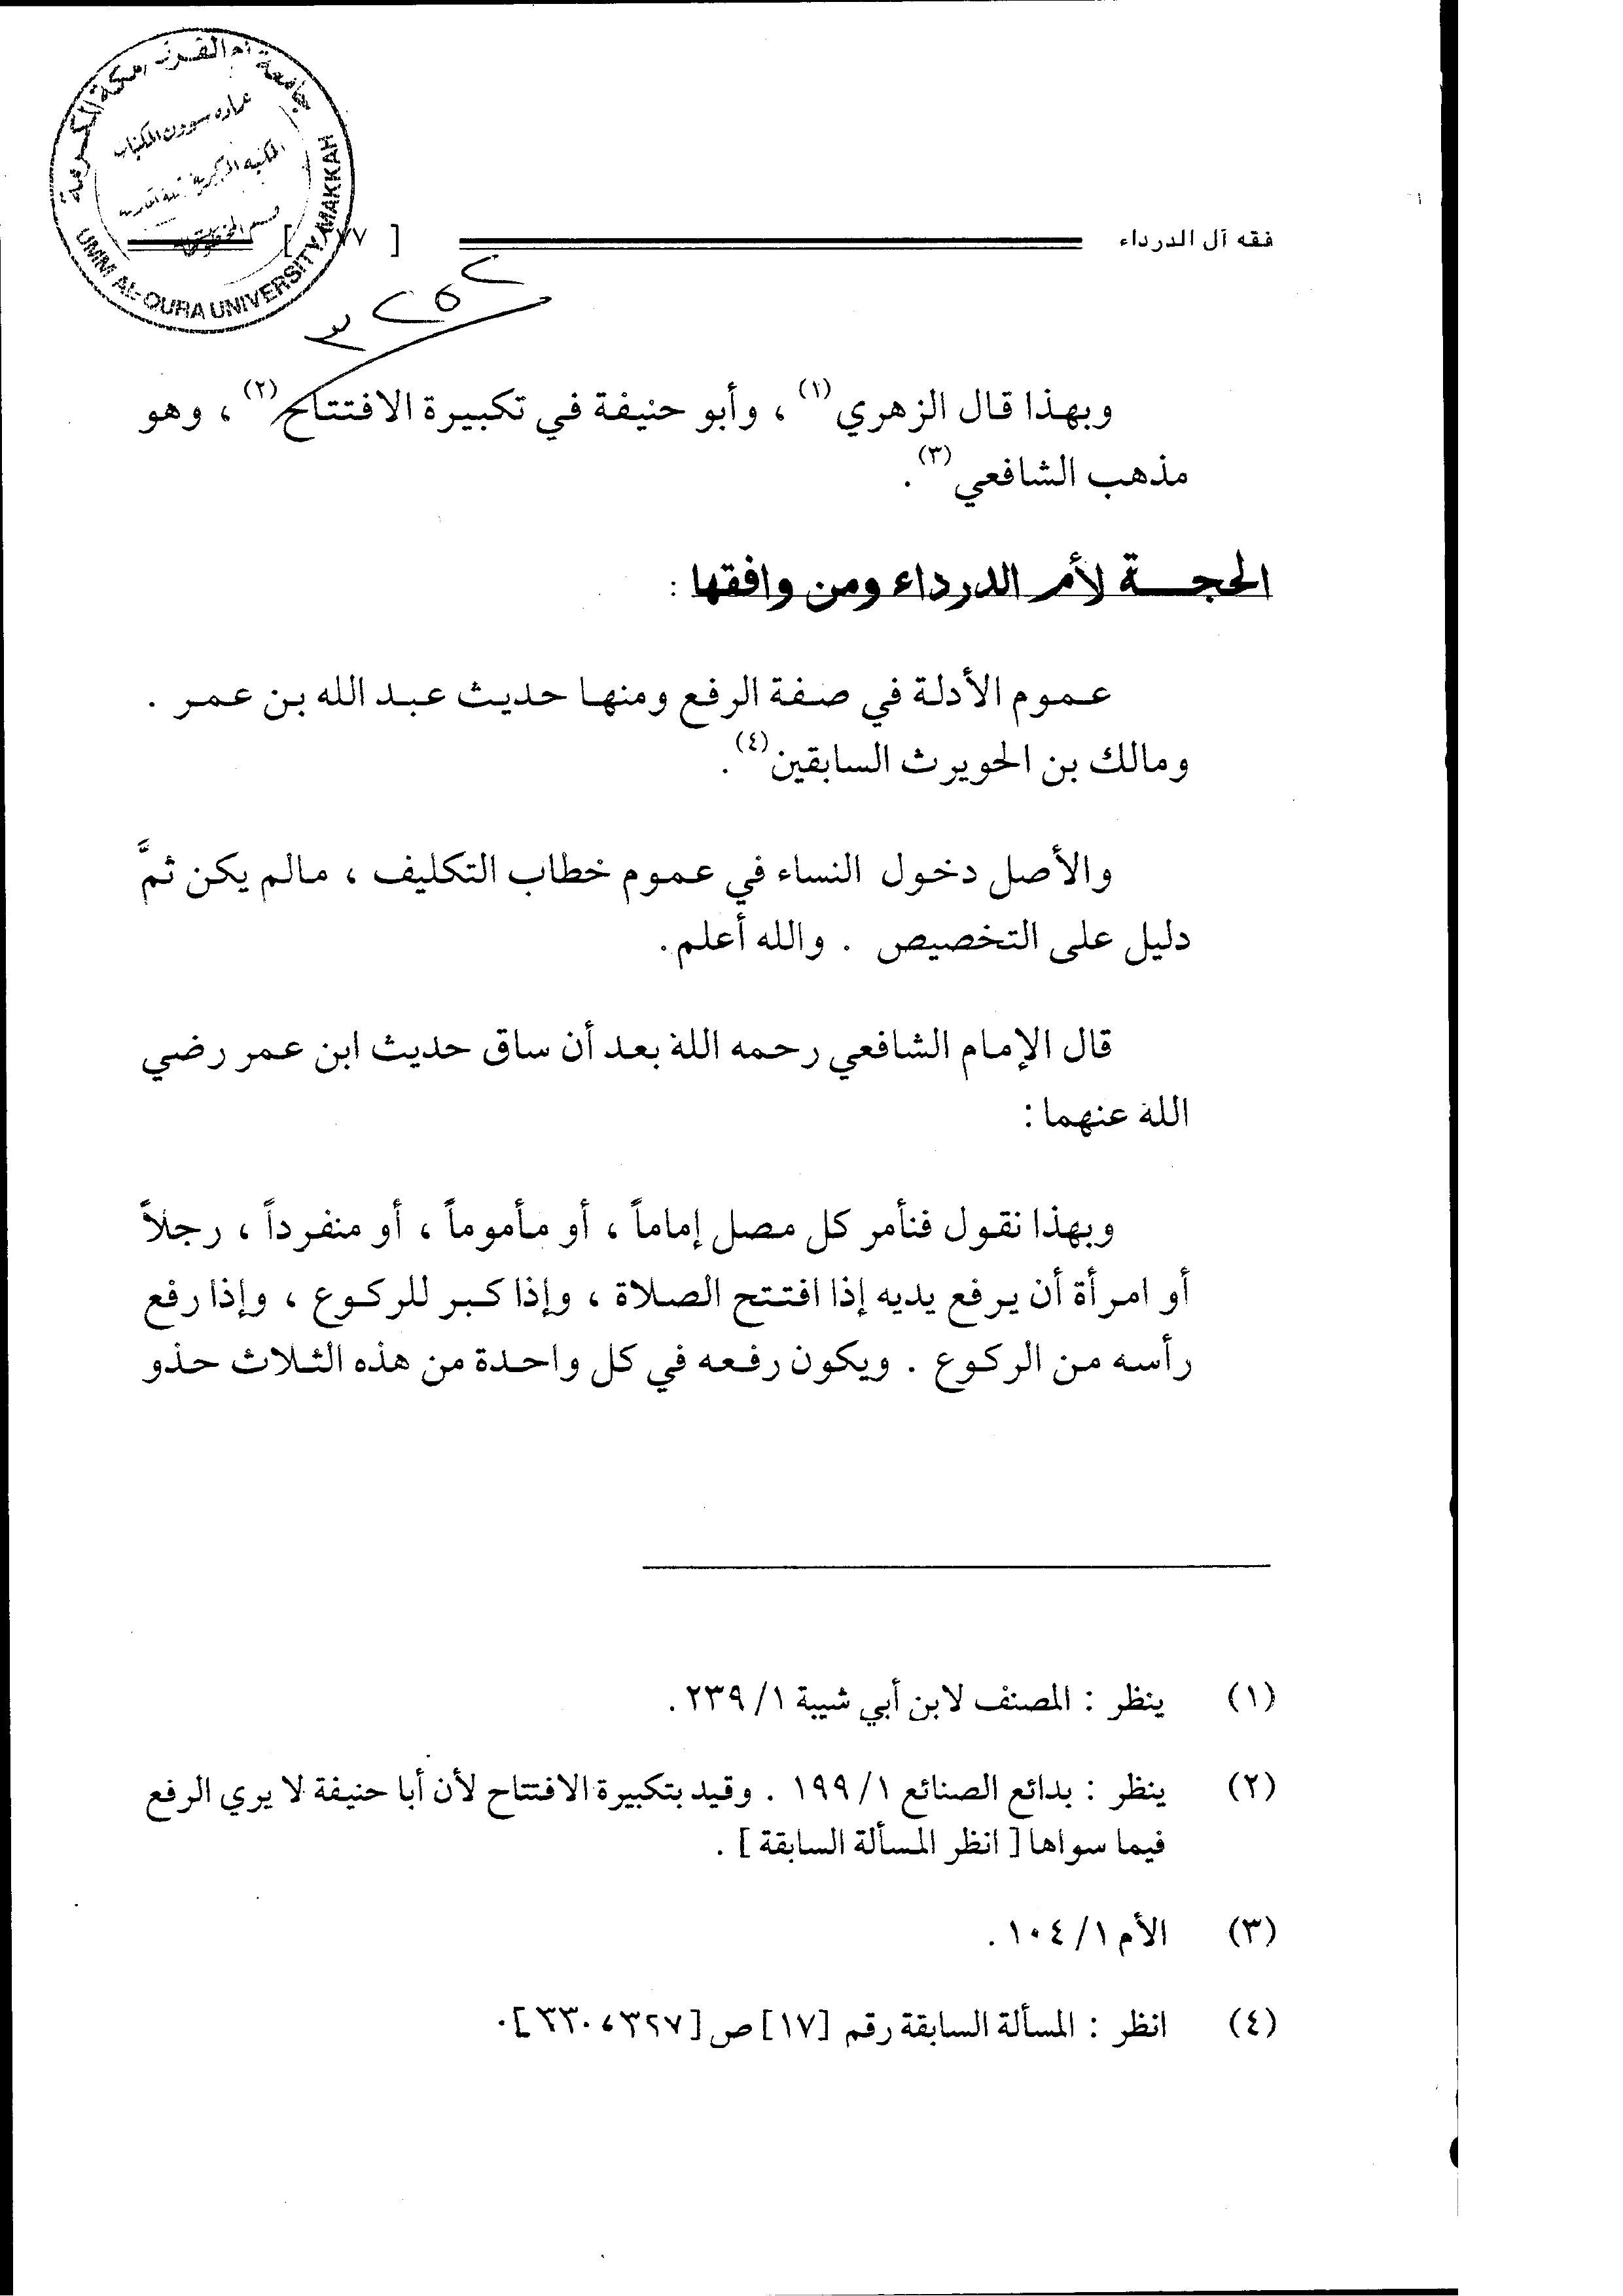 فقه آل الدرداء
جامعة أم القرى مكة المكرمة
UMM AL-QURA UNIVERSITY, MAKKAH
وبهذا قال الزهري(١) ، وأبو حنيفة في تكبيرة الافتتاح(٢) ، وهو
مذهب الشافعي(٣).
الحجة لأم الدرداء ومن وافقها :
عموم الأدلة في صفة الرفع ومنها حديث عبد الله بن عمر .
ومالك بن الحويرث السابقين(٤).
والأصل دخول النساء في عموم خطاب التكليف ، مالم يكن ثمَّ
دليل على التخصيص . والله أعلم.
قال الإمام الشافعي رحمه الله بعد أن ساق حديث ابن عمر رضي
الله عنهما :
وبهذا نقول فنأمر كل مصل إماماً ، أو مأموماً ، أو منفرداً ، رجلاً
أو امرأة أن يرفع يديه إذا افتتح الصلاة ، وإذا كبر للركوع ، وإذا رفع
رأسه من الركوع . ويكون رفعه في كل واحدة من هذه الثلاث حذو
(١) ينظر : المصنف لابن أبي شيبة ١/ ٢٣٩ .
(٢) ينظر : بدائع الصنائع ١/ ١٩٩ . وقيد بتكبيرة الافتتاح لأن أبا حنيفة لا يري الرفع
فيما سواها [ انظر المسألة السابقة ] .
(٣) الأم ١/ ١٠٤ .
(٤) انظر : المسألة السابقة رقم [١٧] ص [٣٢٧ ، ٣٣٠].